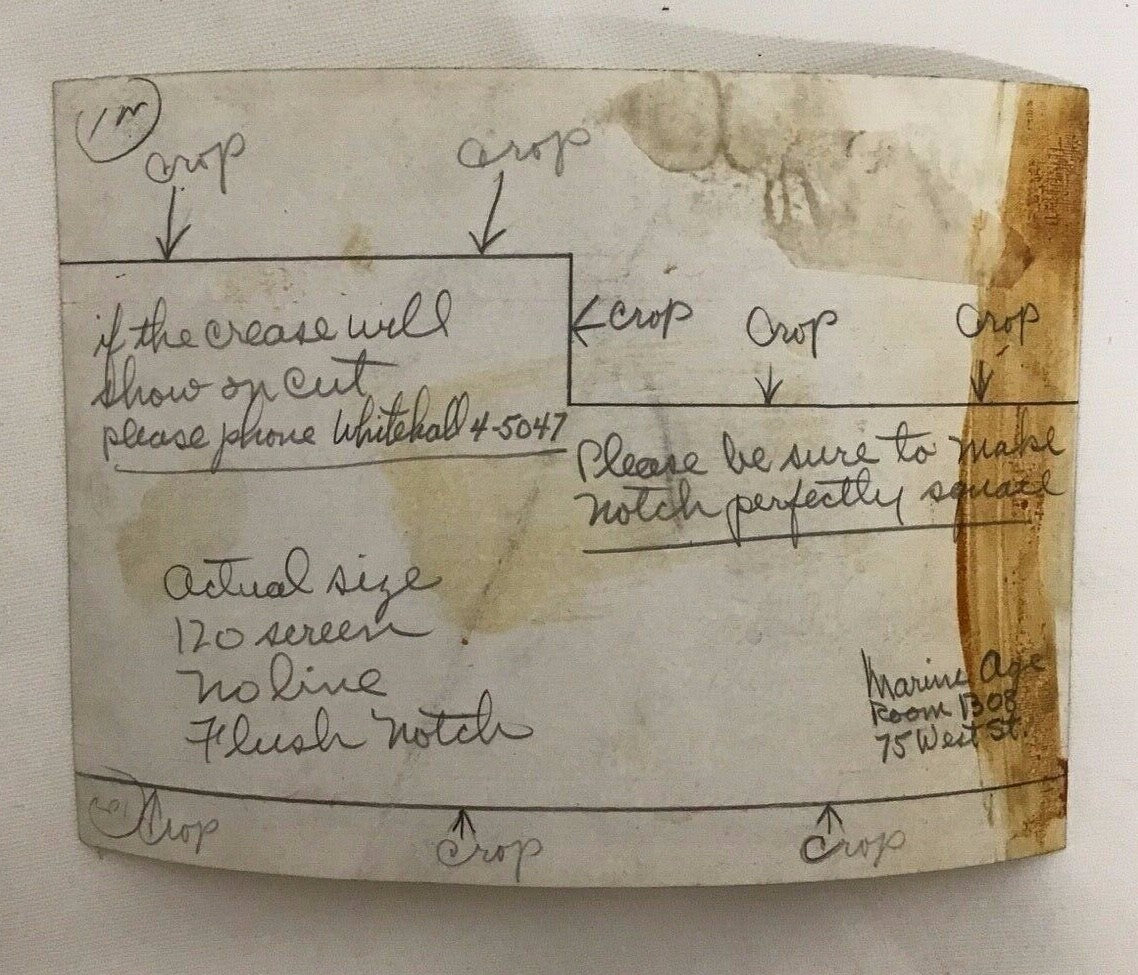 Crop
Crop
Crop
Crop
Crop
if the crease will
show on cut
please phone Whitehall 4-5047
Please be sure to make
notch perfectly square
Actual size
120 screen
No line
Flush Notch
Marine Age
Room 1308
75 West St.
Crop
Crop
Crop